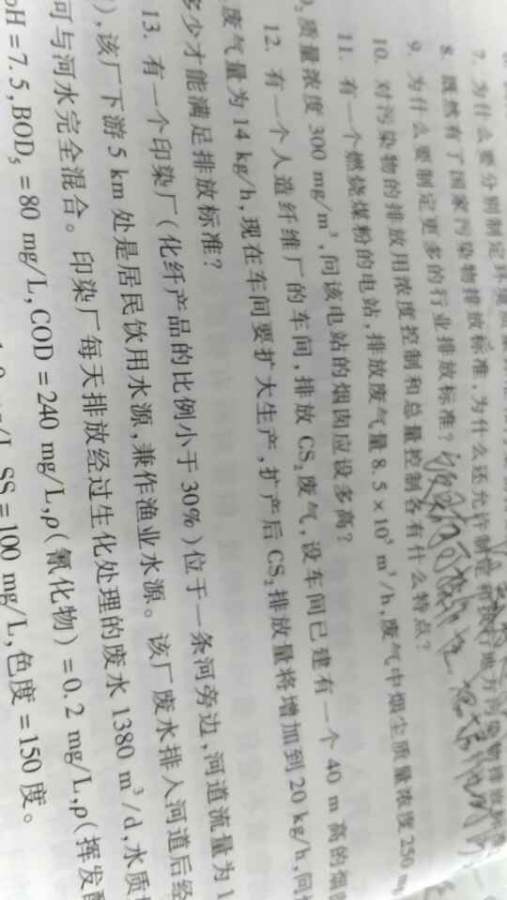 7. 为什么要分别制定环
8. 既然有了国家污染物排放标准,为什么还允许制定和执行地方污染物排放
9. 为什么要制定更多的行业排放标准?
10. 对污染物的排放用浓度控制和总量控制各有什么特点?
11. 有一个燃烧煤粉的电站,排放废气量8.5×10⁵ m³/h,废气中烟尘质量浓度250
质量浓度300 mg/m³,问该电站的烟囱应设多高?
12. 有一个人造纤维厂的车间,排放CS₂废气,设车间已建有一个40 m高的烟
废气量为14 kg/h,现在车间要扩大生产,扩产后CS₂排放量将增加到20 kg/h,问
多少才能满足排放标准?
13. 有一个印染厂(化纤产品的比例小于30%)位于一条河旁边,河道流量为1
),该厂下游5 km处是居民饮用水源,兼作渔业水源。该厂废水排入河道后经
可与河水完全混合。印染厂每天排放经过生化处理的废水1380 m³/d,水质
pH=7.5,BOD₅=80 mg/L,COD=240 mg/L,ρ(氰化物)=0.2 mg/L,ρ(挥发
mg/L,SS=100 mg/L,色度=150度。